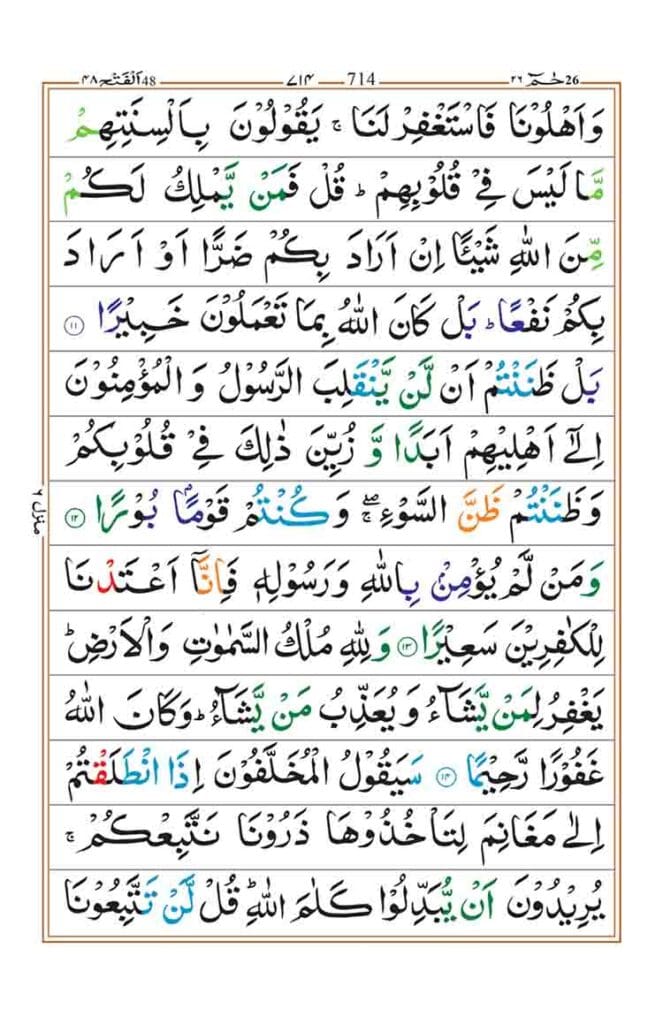 حٰمٓ 26 ٢٦ 714 ٧١٤ اَلْفَتْح 48 ٤٨
وَاَهْلُوْنَا فَاسْتَغْفِرْ لَنَا ۚ يَقُوْلُوْنَ بِاَلْسِنَتِهِمْ
مَّا لَيْسَ فِيْ قُلُوْبِهِمْ ؕ قُلْ فَمَنْ يَّمْلِكُ لَكُمْ
مِّنَ اللّٰهِ شَيْـًٔا اِنْ اَرَادَ بِكُمْ ضَرًّا اَوْ اَرَادَ
بِكُمْ نَفْعًا ؕ بَلْ كَانَ اللّٰهُ بِمَا تَعْمَلُوْنَ خَبِيْرًا ۝١١
بَلْ ظَنَنْتُمْ اَنْ لَّنْ يَّنْقَلِبَ الرَّسُوْلُ وَالْمُؤْمِنُوْنَ
اِلٰٓى اَهْلِيْهِمْ اَبَدًا وَّ زُيِّنَ ذٰلِكَ فِيْ قُلُوْبِكُمْ
وَظَنَنْتُمْ ظَنَّ السَّوْءِ ۖۚ وَكُنْتُمْ قَوْمًۢا بُوْرًا ۝١٢
وَمَنْ لَّمْ يُؤْمِنْۢ بِاللّٰهِ وَرَسُوْلِهٖ فَاِنَّآ اَعْتَدْنَا
لِلْكٰفِرِيْنَ سَعِيْرًا ۝١٣ وَلِلّٰهِ مُلْكُ السَّمٰوٰتِ وَالْاَرْضِ ؕ
يَغْفِرُ لِمَنْ يَّشَآءُ وَيُعَذِّبُ مَنْ يَّشَآءُ ؕ وَكَانَ اللّٰهُ
غَفُوْرًا رَّحِيْمًا ۝١٤ سَيَقُوْلُ الْمُخَلَّفُوْنَ اِذَا انْطَلَقْتُمْ
اِلٰى مَغَانِمَ لِتَاْخُذُوْهَا ذَرُوْنَا نَتَّبِعْكُمْ ۚ
يُرِيْدُوْنَ اَنْ يُّبَدِّلُوْا كَلٰمَ اللّٰهِ ؕ قُلْ لَّنْ تَتَّبِعُوْنَا
منزل ٦